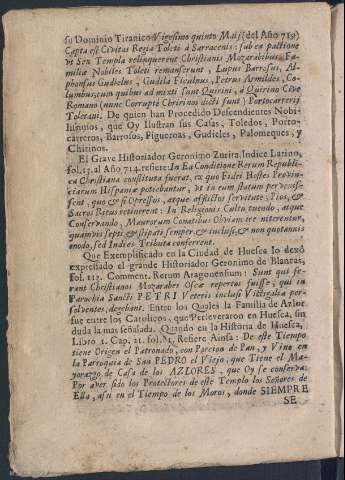 su Dominio Tiranico: Vigesimo quinto Maij (del Año 719)
Capta est Civitas Regia Toleti à Sarracenis: sub ea pactione
ut Sex Templa relinquerent Christianis Mozarabibus. Fa-
miliæ Nobiles Toleti remanserunt, Lupus Barrosus, Al-
phonsus Gudielus, Gudila Ficulnus, Petrus Armildes, Co-
lumbus, cum quibus ad mixti sunt Quirini, à Quirino Cive
Romano (nunc Corrupte Chririnos dicti sunt) Portocarrerij
Toletani. De quien han Procedido Descendientes Nobi-
lissimos, que Oy Ilustran sus Casas: Toledos, Porto-
carreros, Barrosos, Figueroas, Gudieles, Palomeques, y
Chirinos.
El Grave Historiador Geronimo Zurita, Indice Latino,
fol. 15. al Año 714. refiere: In Ea Conditione Rerum Republi-
ca Christiana constituta fuerat, ex quo Fidei Hostes Provin-
ciarum Hispaniæ potiebantur, ut in eum statum pervenis-
sent, quo &si Opressos, atque afflictos servitute, Pios, &
Sacros Ritus retinerent: In Religionis Cultu tuendo, atque
Conservando, Maurorum Conatibus Obviam ire niterentur,
quamvis septi, & stipati semper, & inclusi, & non quotannis
modo, sed Indies Tributa conferrent.
Que Exemplificado en la Ciudad de Huesca lo dexó
expressado el grande Historiador Geronimo de Blancas,
fol. 122. Comment. Rerum Aragonensium: Sunt qui fe-
rant Christianos Mozarabes Oscæ repertos fuisse, qui in
Parochia Sancti PETRI Veteris inclusi Vittigalia per-
solventes, degebant. Entre los Quales la Familia de Azlor
fue entre los Catolicos, que Perseveraron en Huesca, sin
duda la mas señalada. Quando en la Historia de Huesca,
Libro 1. Cap. 21. fol. 81. Refiere Ainsa: De este Tiempo
tiene Origen el Patronado, con Porcion de Pan, y Vino en
la Parroquia de San PEDRO el Viejo, que Tiene el Ma-
yorazgo de Casa de los AZLORES, que Oy se conserva:
Por aver sido los Protectores de este Templo los Señores de
Ella, assi en el Tiempo de los Moros, donde SIEMPRE
SE